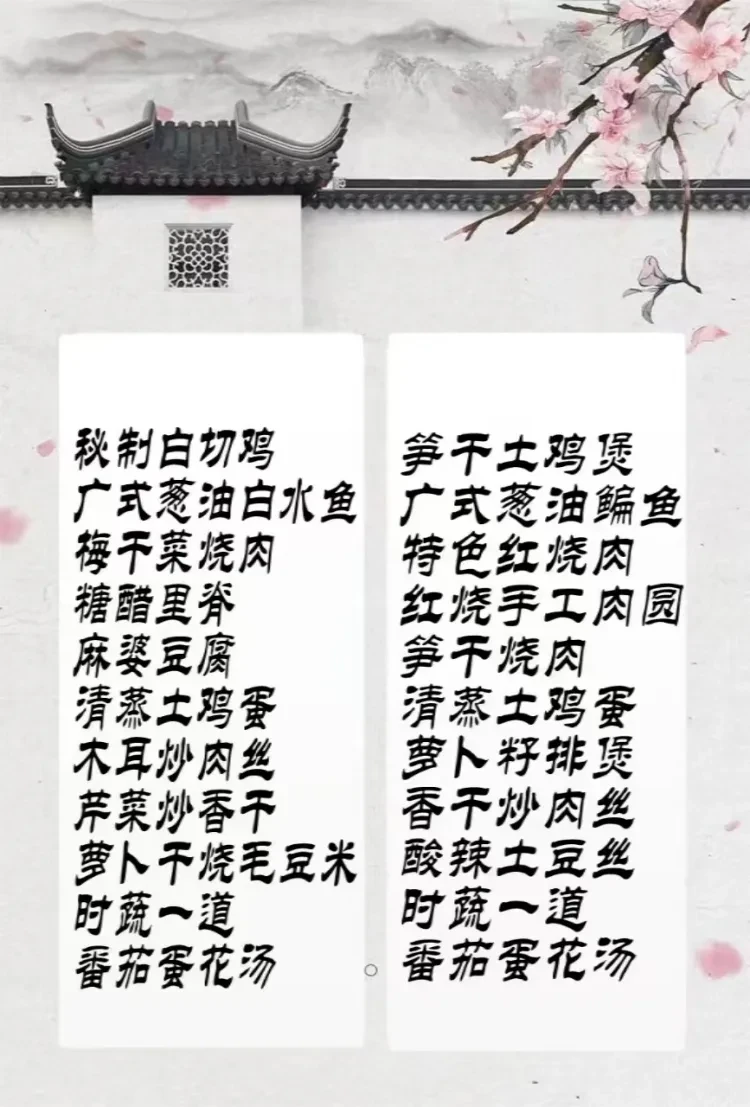 秘制白切鸡
广式葱油白水鱼
梅干菜烧肉
糖醋里脊
麻婆豆腐
清蒸土鸡蛋
木耳炒肉丝
芹菜炒香干
萝卜干烧毛豆米
时蔬一道
番茄蛋花汤
笋干土鸡煲
广式葱油鳊鱼
特色红烧肉
红烧手工肉圆
笋干烧肉
清蒸土鸡蛋
萝卜籽排煲
香干炒肉丝
酸辣土豆丝
时蔬一道
番茄蛋花汤